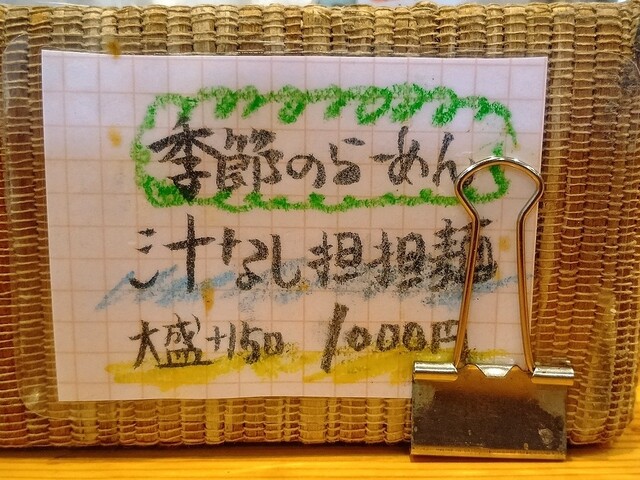 季節のらーめん
汁なし担担麺
大盛+150 1000円